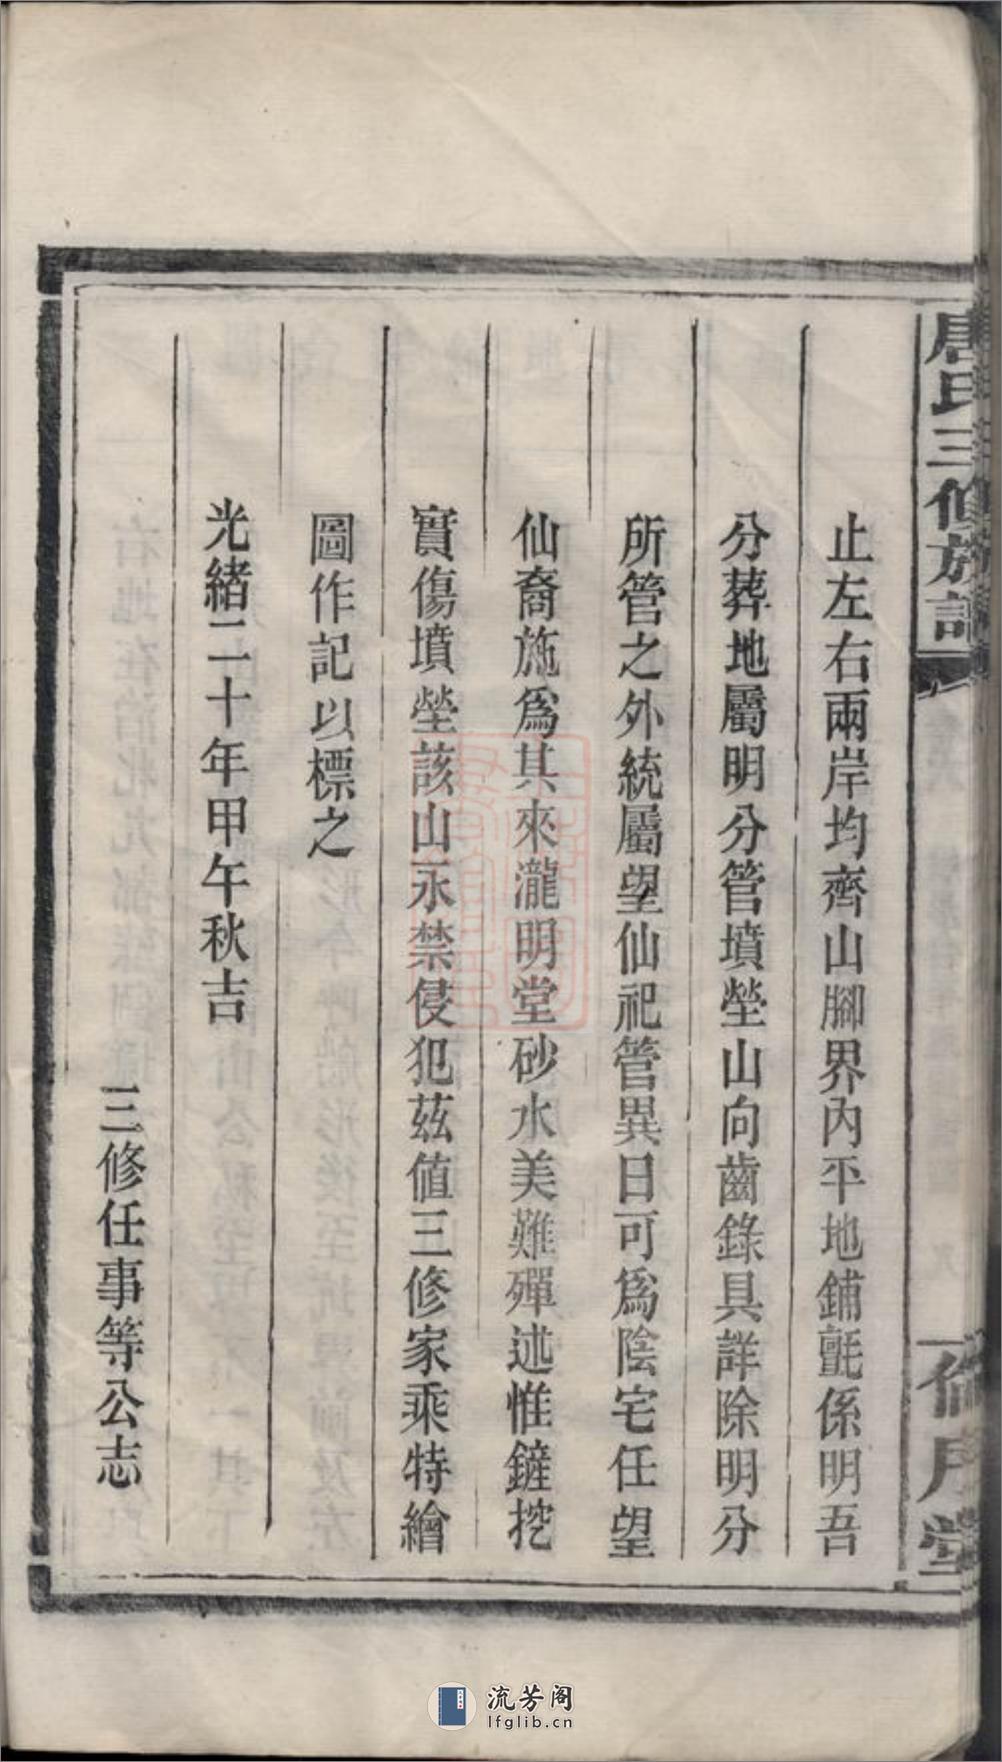 唐氏三修族譜
倫序堂
止左右兩岸均齊山腳界內平地鋪氈係明吾
分葬地屬明分管墳塋山向齒錄具詳除明分
所管之外統屬望仙祀管異日可爲陰宅任望
仙裔施爲其來瀧明堂砂水美難殫述惟鏟挖
實傷墳塋該山永禁侵犯茲值三修家乘特繪
圖作記以標之
光緒二十年甲午秋吉
三修任事等公志
流芳阁
lfglib.cn